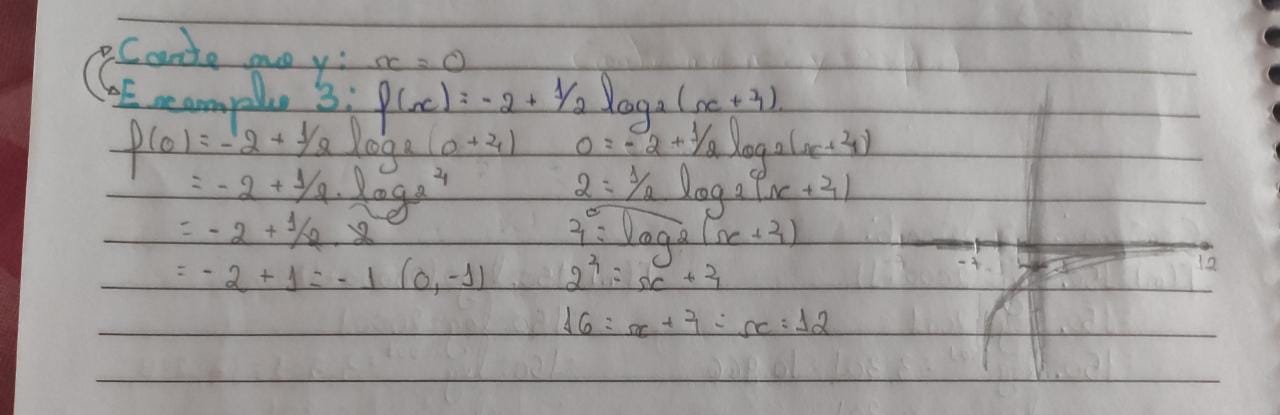 Corte no y: x = 0
Exemplo 3: f(x) = -2 + 1/2 log₂(x+4)
f(0) = -2 + 1/2 log₂(0+4)
= -2 + 1/2 . log₂4
= -2 + 1/2 . 2
= -2 + 1 = -1 (0,-1)
0 = -2 + 1/2 log₂(x+4)
2 = 1/2 log₂(x+4)
4 = log₂(x+4)
2⁴ = x + 4
16 = x + 4 = x = 12
-4
12